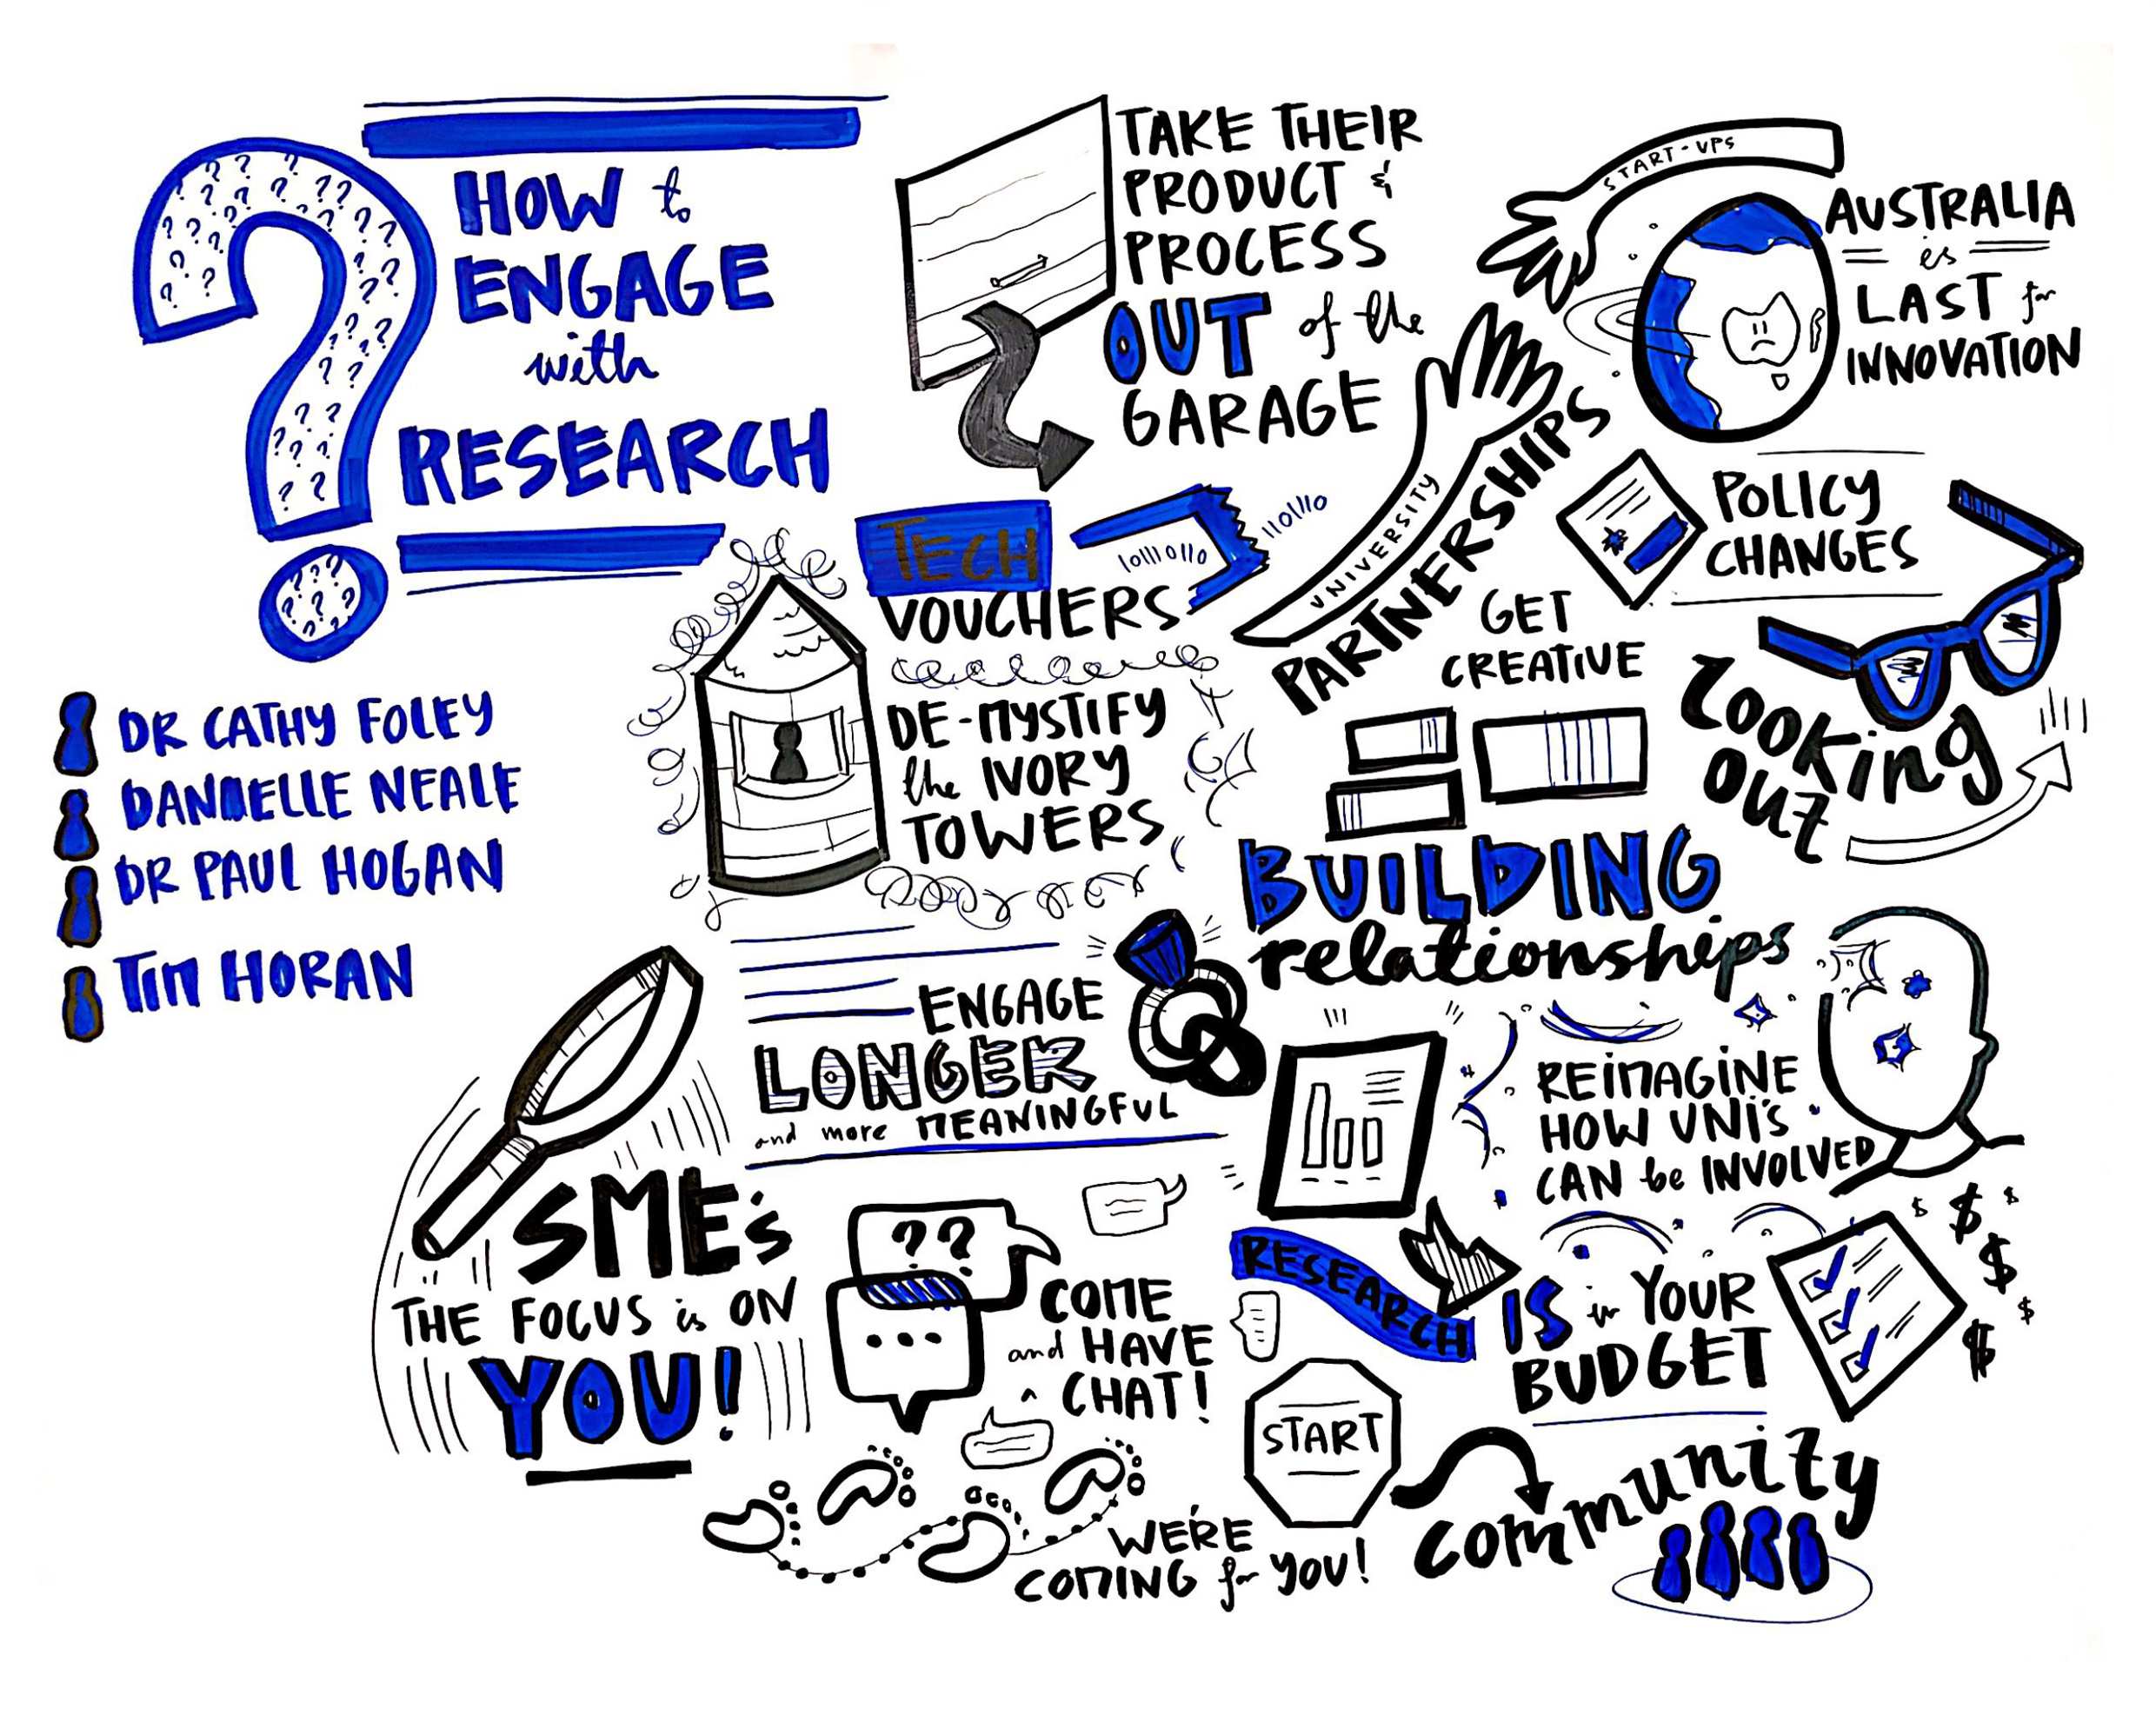 HOW to
ENGAGE
with
RESEARCH
DR CATHY FOLEY
DANIELLE NEALE
DR PAUL HOGAN
TIM HORAN
TAKE THEIR
PRODUCT &
PROCESS
OUT of the
GARAGE
START-UPS
UNIVERSITY
PARTNERSHIPS
AUSTRALIA
is
LAST for
INNOVATION
TECH
VOUCHERS
1011101110
11011110
DE-MYSTIFY
the IVORY
TOWERS
POLICY
CHANGES
GET
CREATIVE
LOOKING
OUT
BUILDING
relationships
ENGAGE
LONGER
and more MEANINGFUL
REIMAGINE
HOW UNI'S
CAN be INVOLVED
SME's
THE FOCUS is ON
YOU!
??
...
COME
and HAVE
a CHAT!
RESEARCH
IS in YOUR
BUDGET
$ $ $ $ $ $
START
community
WE'RE
COMING for YOU!